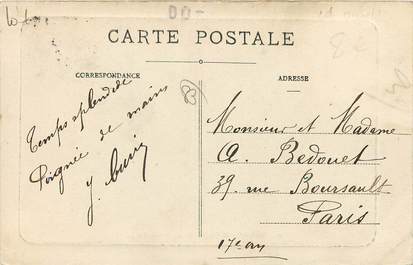 CARTE POSTALE
CORRESPONDANCE
Temps splendide
Poignée de mains
ADRESSE
Monsieur et Madame
A. Bedouet
39. rue Boursault
Paris
17e arr